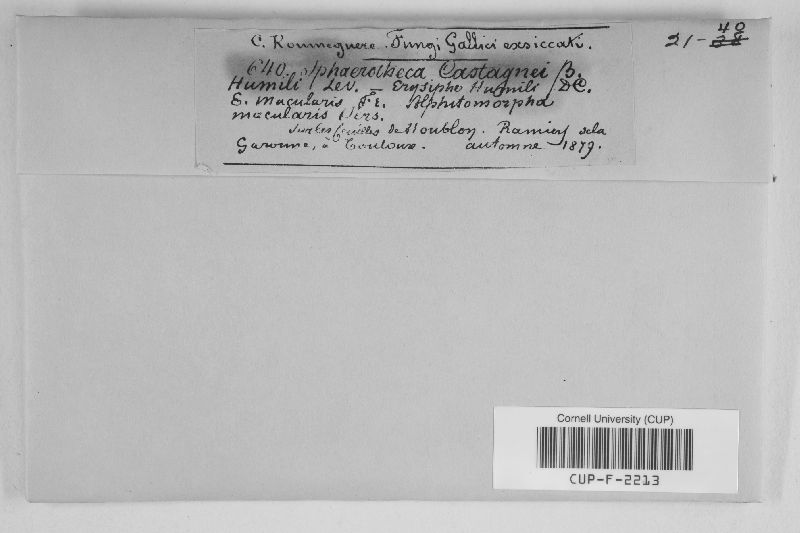 C. Roumeguere. Fungi Gallici exsiccati.
21-40
28
640. Sphaerotheca Castagnei β.
Humili Lev. — Erysiphe Humili DC.
E. Macularis Fr. Alphitomorpha
macularis Pers.
Sur les feuilles de Houblon. Ramier de la
Garonne, à Toulouse. automne 1879.
Cornell University (CUP)
CUP-F-2213